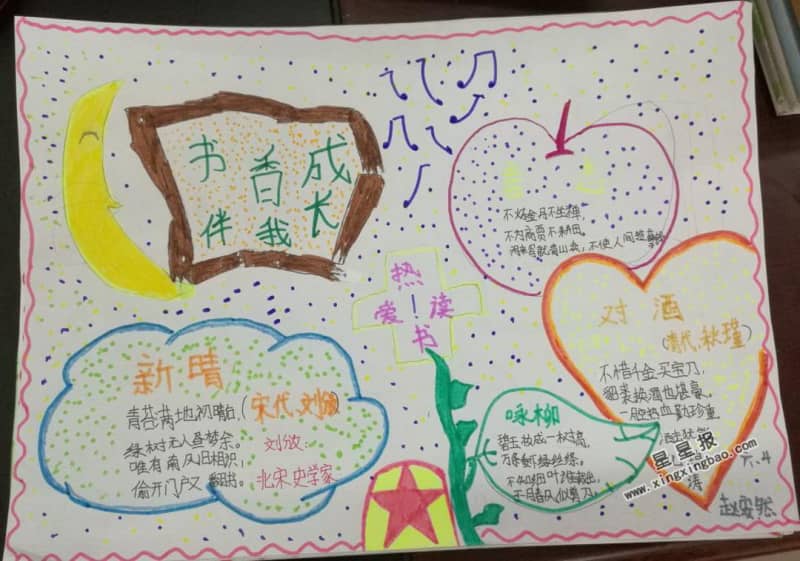 书香成长
伴我
言志
不炼金丹不坐禅,
不为商贾不耕田.
闲来写就青山卖,不使人间造孽钱
热
爱!读
书
对酒
(清代.秋瑾)
不惜千金买宝刀,
貂裘换酒也堪豪.
一腔热血勤珍重
洒去
涛
新晴
(宋代.刘攽)
青苔满地初晴后,
绿树无人昼梦余.
唯有南风旧相识,
偷开门户又翻书.
刘攽:
北宋史学家
咏柳
碧玉妆成一树高,
万条垂下绿丝绦.
不知细叶谁裁出,
二月春风似剪刀.
六.4
赵安然
星星报
www.xingxingbao.com